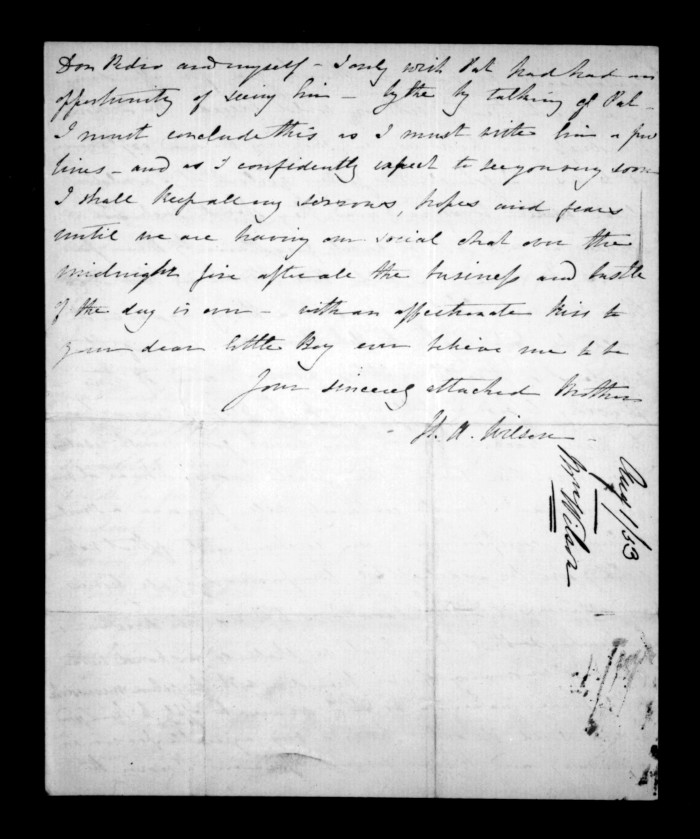 Don Pedro and myself - I only wish Pat had had an
opportunity of seeing him - by the by talking of Pat -
I must conclude this as I must write him a few
lines - and as I confidently expect to see you very soon
I shall keep all my sorrows, hopes and fears
until we are having our social chat over the
midnight fire after all the business and bustle
of the day is over - with an affectionate kiss to
your dear little Boy ever believe me to be
Your sincerely attached Brother
H. W. Wilson
Aug 1/53
Wilson